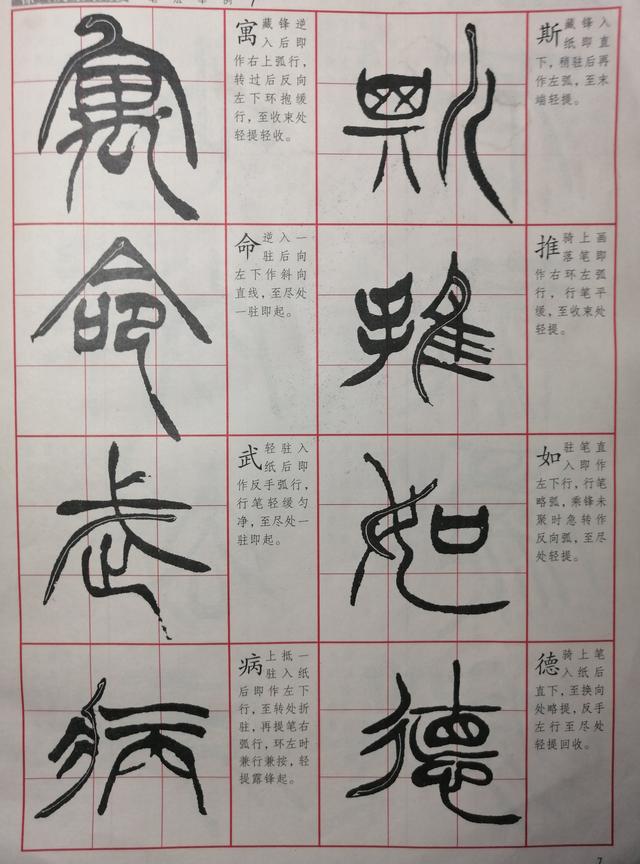 寓
寓 藏锋逆
入后即
作右上弧行，
转过后反向
左下环抱缓
行，至收束处
轻提轻收。
斯
斯 藏锋入
纸即直
下，稍驻后再
作左弧，至末
端轻提。
命
命 逆入一
驻后向
左下作斜向
直线，至尽处
一驻即起。
推
推 骑上画
落笔即
作右环左弧
行，行笔平
缓，至收束处
轻提。
武
武 轻驻入
纸后即
作反手弧行，
行笔轻缓匀
净，至尽处一
驻即起。
如
如 驻笔直
入即作
左下行，行笔
略弧，乘锋未
聚时急转作
反向弧，至尽
处轻提。
病
病 上抵一
驻入纸
后即作左下
行，至转处折
驻，再提笔右
弧行，环左时
兼行兼按，轻
提露锋起。
德
德 骑上笔
入纸后
直下，至换向
处略提，反手
左行至尽处
轻提回收。
7